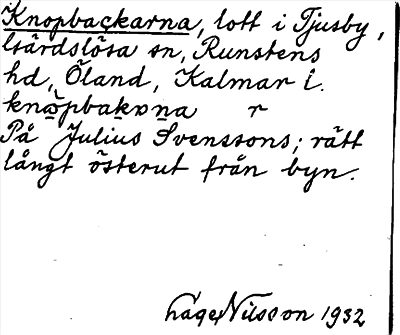 Knopbackarna, lott i Tjusby,
Gärdslösa sn, Runstens
hd, Öland, Kalmar l.
på Julius Svenssons; rätt
långt österut från byn.
Låge Nilsson 1932